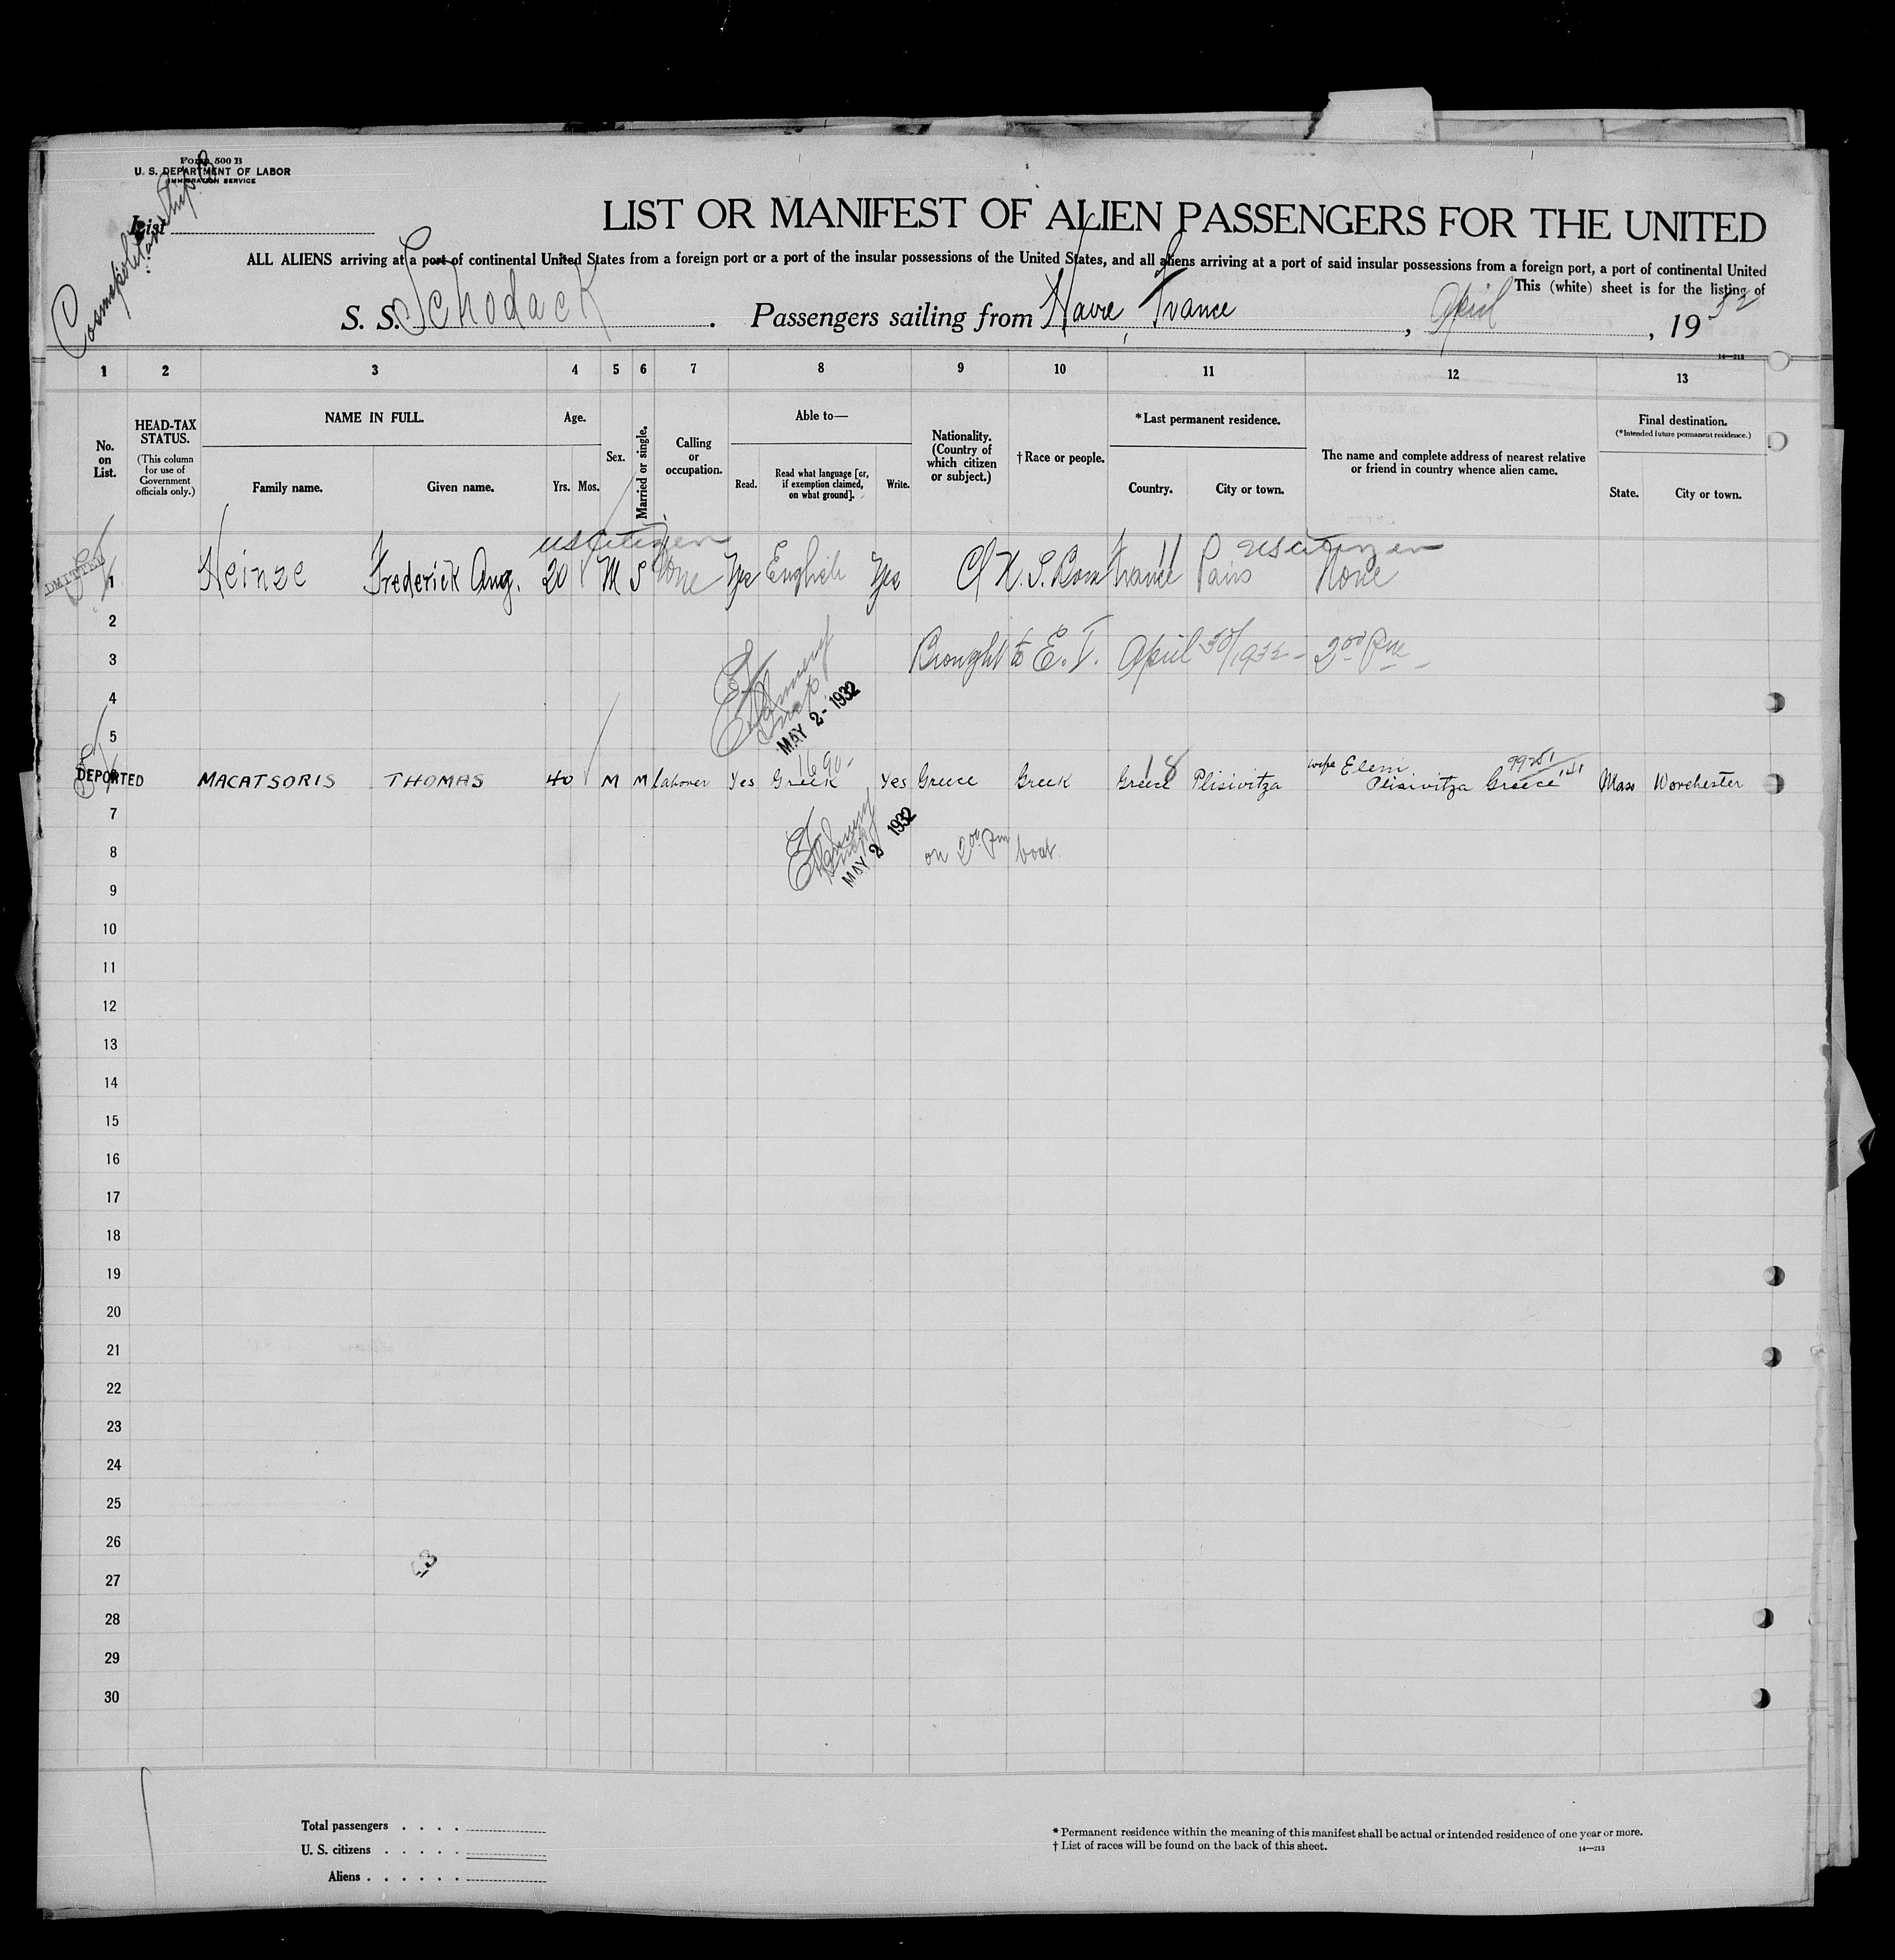 Form 500 B
U. S. DEPARTMENT OF LABOR
IMMIGRATION SERVICE
List
Cosmopolitan Ship. Co
LIST OR MANIFEST OF ALIEN PASSENGERS FOR THE UNITED
ALL ALIENS arriving at a port of continental United States from a foreign port or a port of the insular possessions of the United States, and all aliens arriving at a port of said insular possessions from a foreign port, a port of continental United
This (white) sheet is for the listing of
S. S. Schodack. Passengers sailing from Havre, France, April, 1932
14—213
1 2 3 4 5 6 7 8 9 10 11 12 13
No. on List.
HEAD-TAX STATUS.
(This column for use of Government officials only.)
NAME IN FULL.
Family name. Given name.
Age.
Yrs. Mos.
Sex.
Married or single.
Calling or occupation.
Able to—
Read. Read what language [or, if exemption claimed, on what ground]. Write.
Nationality. (Country of which citizen or subject.)
†Race or people.
*Last permanent residence.
Country. City or town.
The name and complete address of nearest relative or friend in country whence alien came.
Final destination.
(*Intended future permanent residence.)
State. City or town.
US Citizen US Citizen
ADMITTED
1 Heinze Frederick Aug. 20 M S None Yes English Yes U.S. Born France Paris None
2
3 Brought to E. I. April 30/1932 - 2 00 Pm
4
MAY 2 - 1932
5
DEPORTED MACATSORIS THOMAS 40 M M laborer Yes Greek Yes Greece Greek Greece Plisivitza wife Eleni Plisivitza Greece Mass Worchester
7
MAY 2 1932
8 on 2 00 Pm boat.
9
10
11
12
13
14
15
16
17
18
19
20
21
22
23
24
25
26
27
28
29
30
Total passengers . . . .
U. S. citizens . . . . .
Aliens . . . . . .
* Permanent residence within the meaning of this manifest shall be actual or intended residence of one year or more.
† List of races will be found on the back of this sheet.
14—213